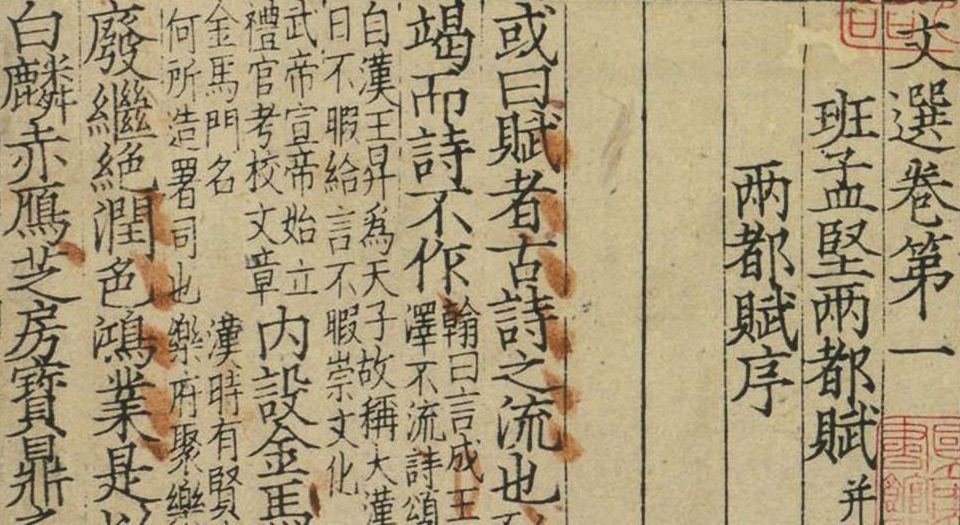 文選卷第一
班孟堅兩都賦并
兩都賦序
或曰賦者古詩之流也
翰曰言成王
竭而詩不作
澤不流詩頌
自漢王昇為天子故稱大漢
日不暇給言不暇崇文化
武帝宣帝始立
禮官考校文章
內設金馬
漢時有賢
金馬門名
何所造署同也樂府聚樂
廢繼絕潤色鴻業是以
白麟赤鴈芝房寶鼎之